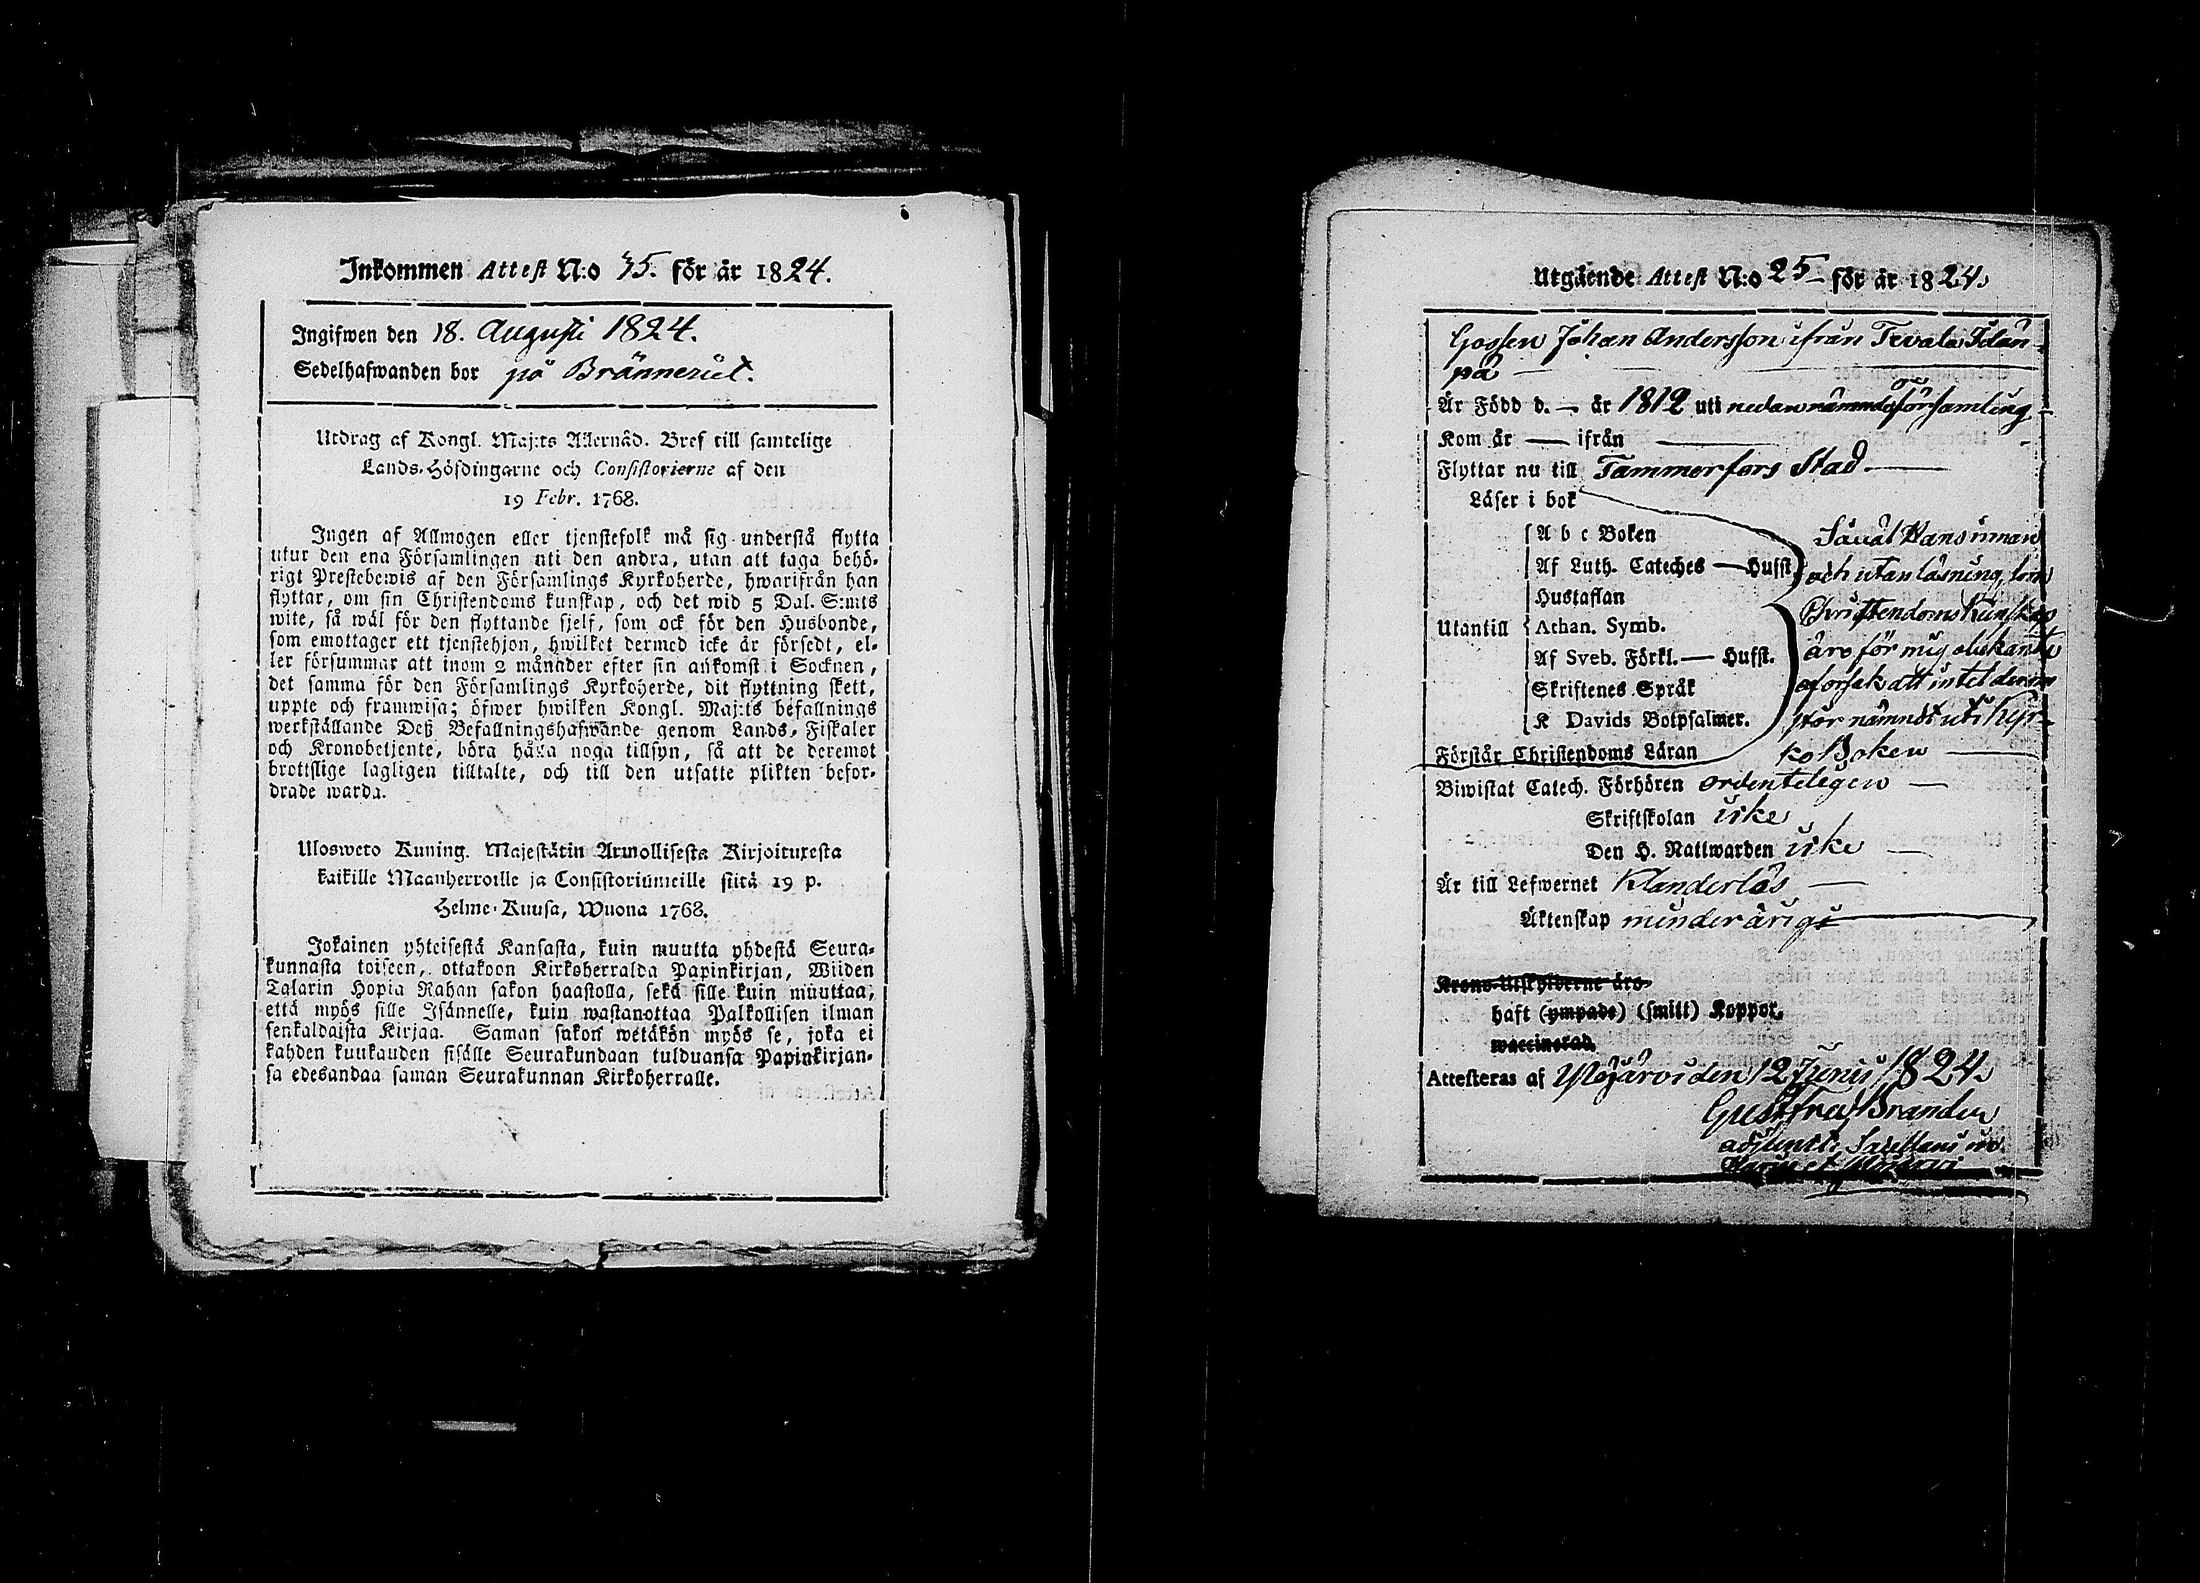 Inkommen Attest N:o 45. för år 1824.
Ingifwen den 18. Augusti 1824.
Sedelhafwanden bor på Bränneriet.
Utdrag af Kongl. Maj:ts Allernåd. Bref till samtelige
Lands-Höfdingarne och Consistorierne af den
19 Febr. 1768.
Ingen af Allmogen eller tjenstefolk må sig understå flytta
utur den ena Församlingen uti den andra, utan att taga behö-
rigt Prestebewis af den Församlings Kyrkoherde, hwarifrån han
flyttar, om sin Christendoms kunskap, och det wid 5 Dal. S:mts
wite, så wäl för den flyttande sjelf, som ock för den Husbonde,
som emottager ett tjenstehjon, hwilket dermed icke är försedt, el-
ler försummar att inom 2 månader efter sin ankomst i Socknen,
det samma för den Församlings Kyrkoherde, dit flyttning skett,
uppte och framwisa; öfwer hwilken Kongl. Maj:ts befallnings
werkställande Deß Befallningshafwande genom Lands-Fiskaler
och Kronobetjente, böra hafwa noga tillsyn, så att de deremot
brottslige lagligen tilltalte, och till den utsatte plikten befor-
drade warda.
Ulosweto Kuning. Majestätin Armollisesta Kirjoituxesta
kaikille Maanherroille ja Consistoriumeille siitä 19 p.
Helme-Kuusa, Wuona 1768.
Jokainen yhteisestä Kansasta, kuin muutta yhdestä Seura-
kunnasta toiseen, ottakoon Kirkoherralda Papinkirjan, Wiiden
Talarin Hopia Rahan sakon haastolla, sekä sille kuin muuttaa,
että myös sille Isännelle, kuin wastanottaa Palkollisen ilman
senkaldaista Kirjaa. Saman sakon wetäkön myös se, joka ei
kahden kuukauden sisälle Seurakundaan tulduansa Papinkirjan-
sa edesandaa saman Seurakunnan Kirkoherralle.
Utgående Attest N:o 25 för år 1824.
Gossen Johan Andersson ifrån Tevala Idan
på
Är Född d. — år 1812 uti nedannämnda Församling
Kom år — ifrån —
Flyttar nu till Tammerfors Stad.
Läser i bok
A b c Boken Såväl Hans innan
Af Luth. Cateches — Hufst och utanläsning, som
Hustaflan Christendoms Kunskap
Utantill Athan. Symb. äro för mig obekante
Af Sveb. Förkl. — Hufst. af orsak att intet derom
Skriftenes Språk
K Davids Botpsalmer. står nämndt uti Kyr-
Förstår Christendoms Läran ko Boken
Biwistat Catech. Förhören ordenteligen
Skriftskolan icke
Den H. Nattwarden icke
Är till Lefwernet Klanderlös
Äktenskap minderårigt
Krono-Utskylderne äro
haft (ympade) (smitt) Koppor.
waccinerad.
Attesteras af Ylöjärvi den 12 Junii 1824.
Gust Fra Branden